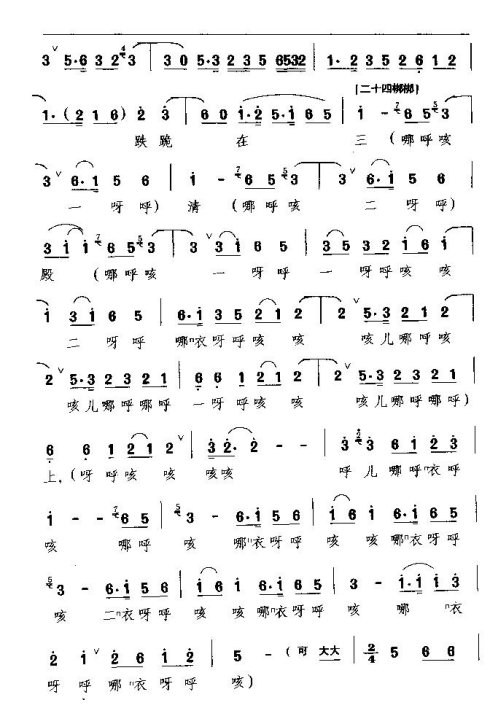 3 ∨ 5·6 3 2 3 | 3 0 5·3 2 3 5 6532 | 1· 2 3 5 2 6 1 2
[二十四梆梆]
1·( 2 1 6 ) 2 3 | 6 0 1·2 5·1 6 5 | 1 - 6 5 3
跌跪在三(哪呼咳
3 ∨ 6·1 5 6 | 1 - 6 5 3 | 3 ∨ 6·1 5 6
一呀呼)清(哪呼咳二呀呼)
3 1 1 6 5 3 | 3 ∨ 3 1 6 5 | 3 5 3 2 1 6 1
殿(哪呼咳一呀呼一呀呼咳咳
1 3 1 6 5 | 6·1 3 5 2 1 2 | 2 ∨ 5·3 2 1 2
二呀呼哪衣呀呼咳咳咳儿哪呼咳
2 ∨ 5·3 2 3 2 1 | 6 6 1 2 1 2 | 2 ∨ 5·3 2 3 2 1
咳儿哪呼哪呼一呀呼咳咳咳儿哪呼哪呼)
6 6 1 2 1 2 ∨ | 3 2· 2 - - | 3 3 6 1 2 3
上,(呀呼咳咳咳咳呼儿哪呼衣呼
1 - - 6 5 | 3 - 6·1 6 5 | 1 6 1 6·1 6 5
咳哪呼咳哪衣呀呼咳咳哪衣呀呼
3 - 6·1 5 6 | 1 6 1 6·1 5 6 | 3 - 1·1 1 3
咳二衣呀呼咳咳哪衣呀呼咳哪衣
2 1 ∨ 2 6 1 2 | 5 - (可 大大 | 2/4 5 6 6 |
呀呼哪衣呀呼咳)